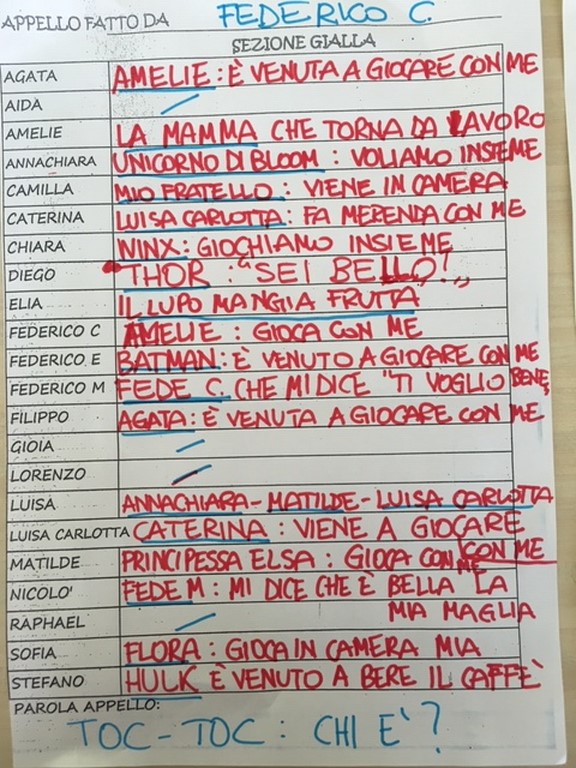 APPELLO FATTO DA FEDERICO C.
SEZIONE GIALLA
AGATA AMELIE : È VENUTA A GIOCARE CON ME
AIDA
AMELIE LA MAMMA CHE TORNA DA LAVORO
ANNACHIARA UNICORNO DI BLOOM : VOLIAMO INSIEME
CAMILLA MIO FRATELLO : VIENE IN CAMERA
CATERINA LUISA CARLOTTA : FA MERENDA CON ME
CHIARA WINX : GIOCHIAMO INSIEME
DIEGO THOR : "SEI BELLO!"
ELIA IL LUPO MANGIA FRUTTA
FEDERICO C AMELIE : GIOCA CON ME
FEDERICO E BATMAN : È VENUTO A GIOCARE CON ME
FEDERICO M FEDE C. CHE MI DICE "TI VOGLIO BENE"
FILIPPO AGATA : È VENUTA A GIOCARE CON ME
GIOIA
LORENZO
LUISA ANNACHIARA - MATILDE - LUISA CARLOTTA
LUISA CARLOTTA CATERINA : VIENE A GIOCARE
CON ME
MATILDE PRINCIPESSA ELSA : GIOCA CON ME
NICOLO' FEDE M : MI DICE CHE È BELLA LA
MIA MAGLIA
RAPHAEL
SOFIA FLORA : GIOCA IN CAMERA MIA
STEFANO HULK È VENUTO A BERE IL CAFFÈ
PAROLA APPELLO:
TOC - TOC : CHI E' ?